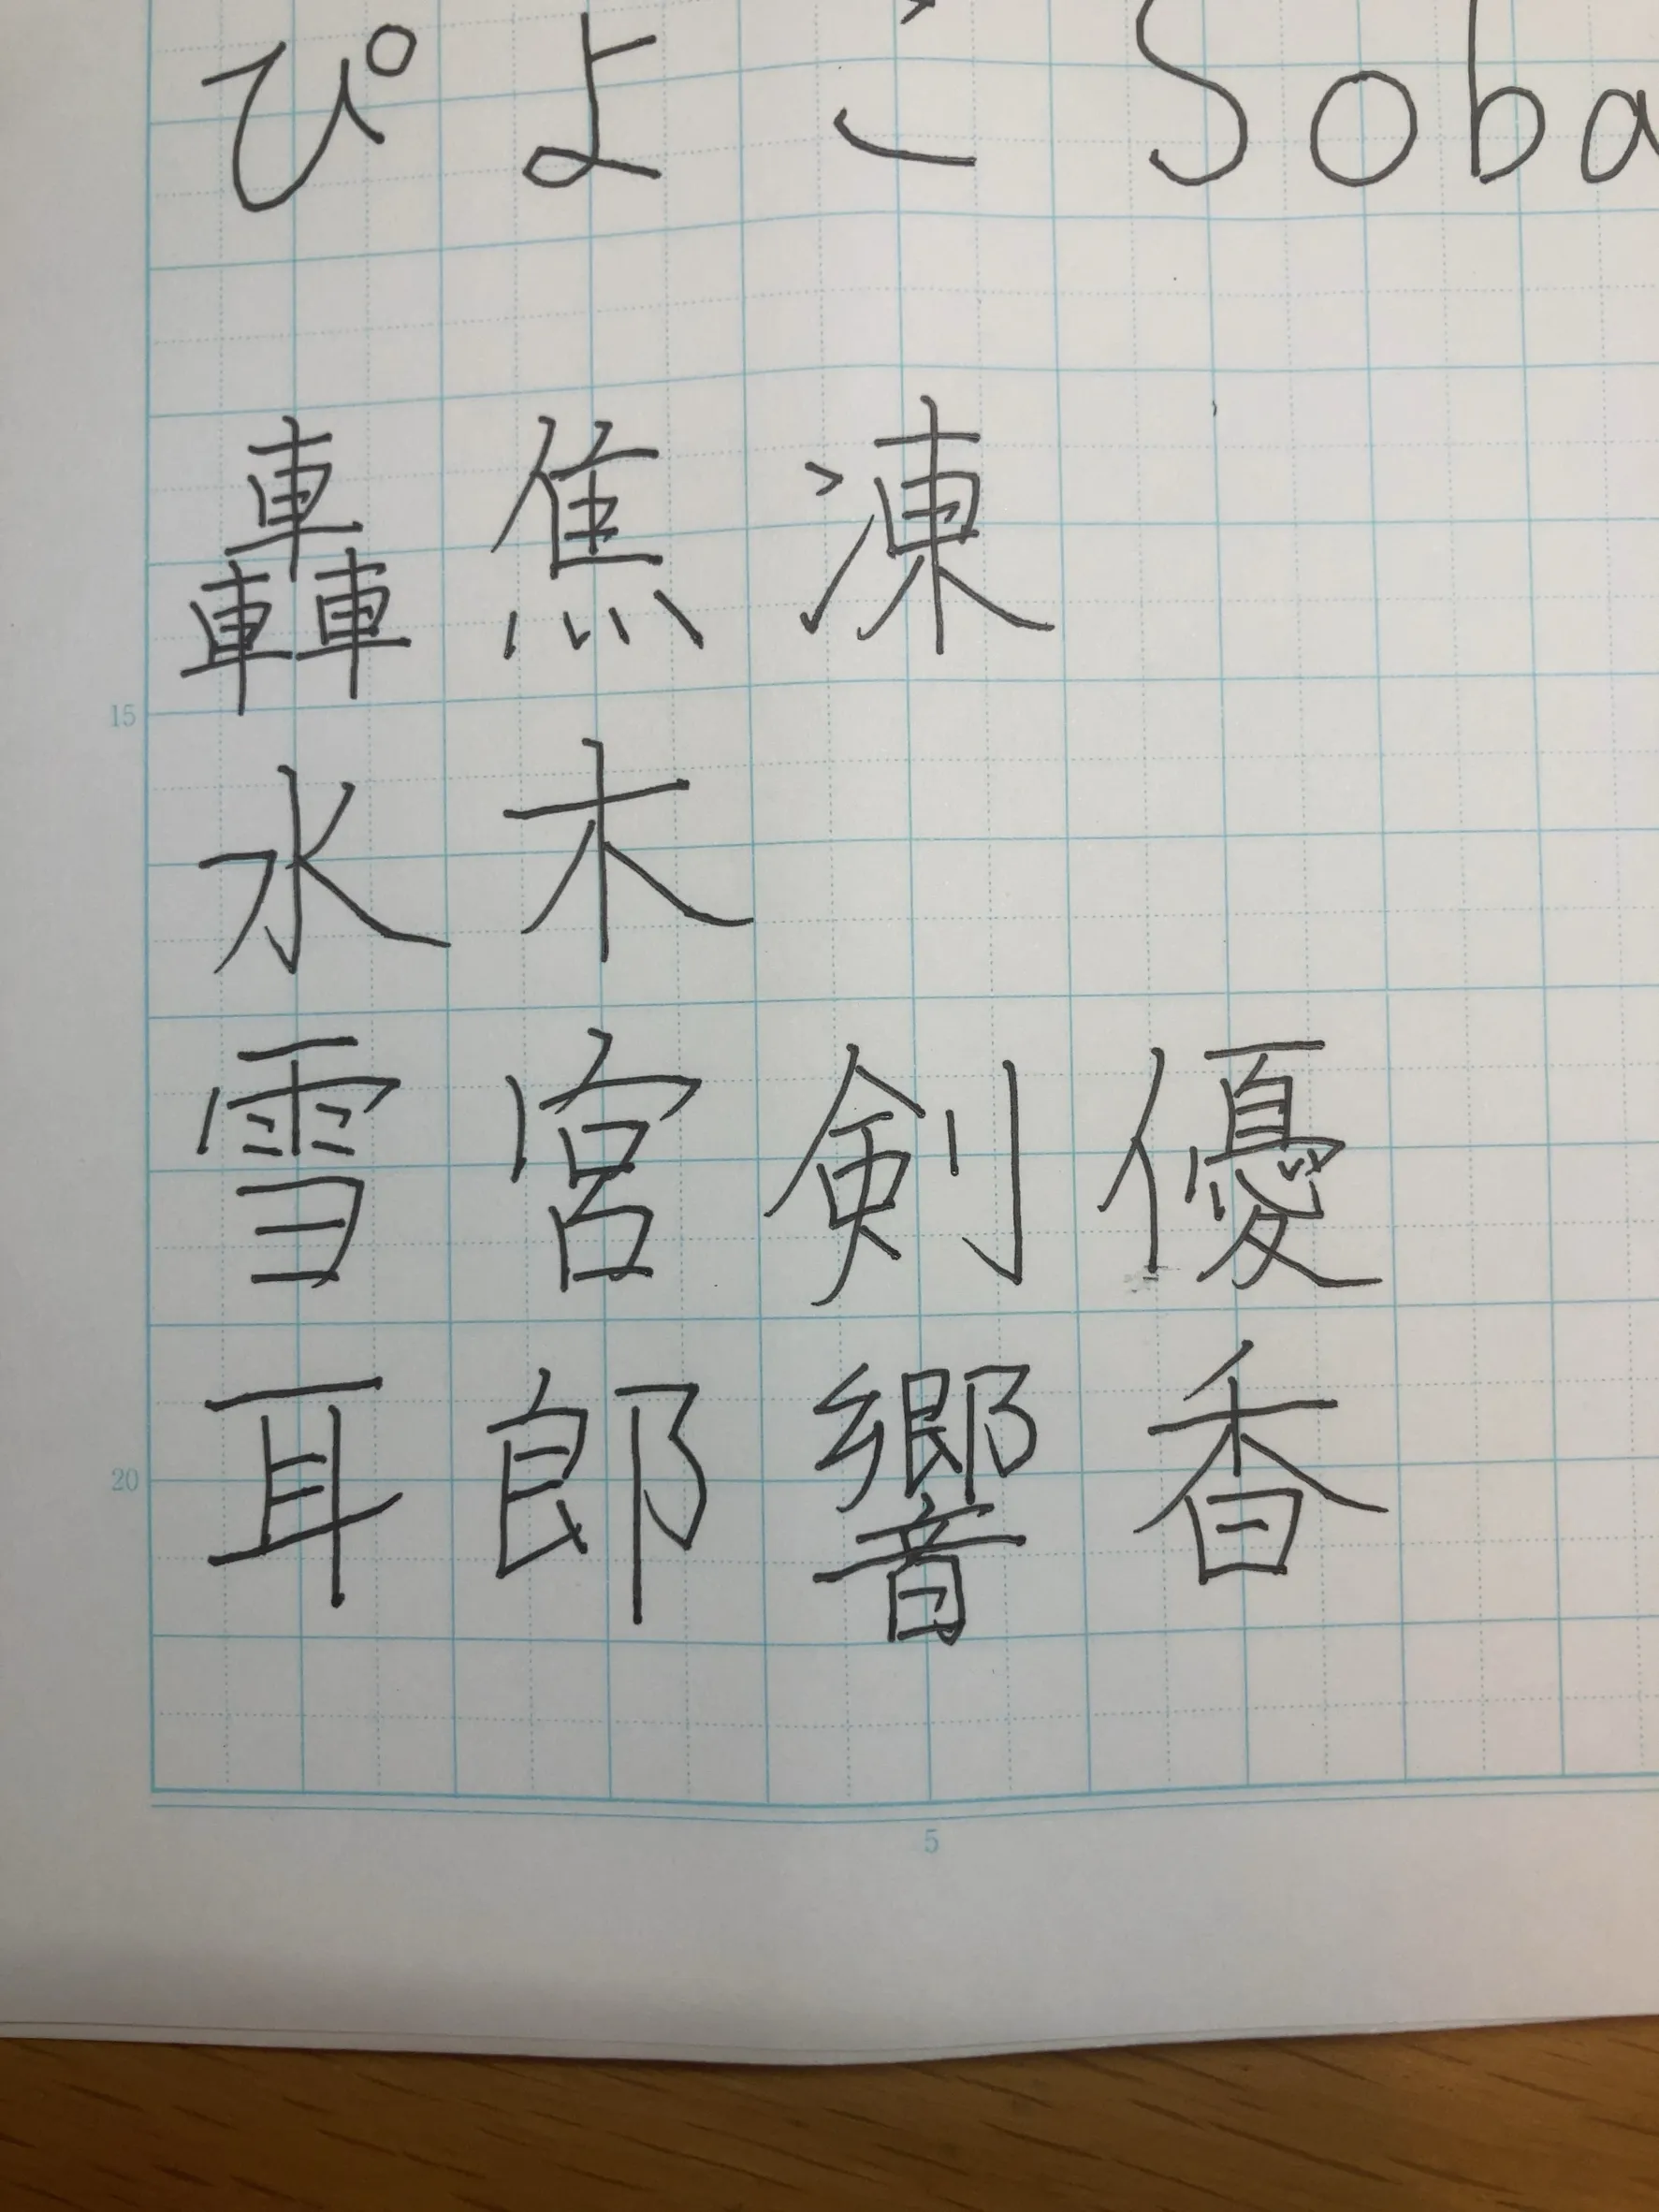 ぴよこ Soba
轟焦凍
水木
雪宮剣優
耳郎響香
15
20
5